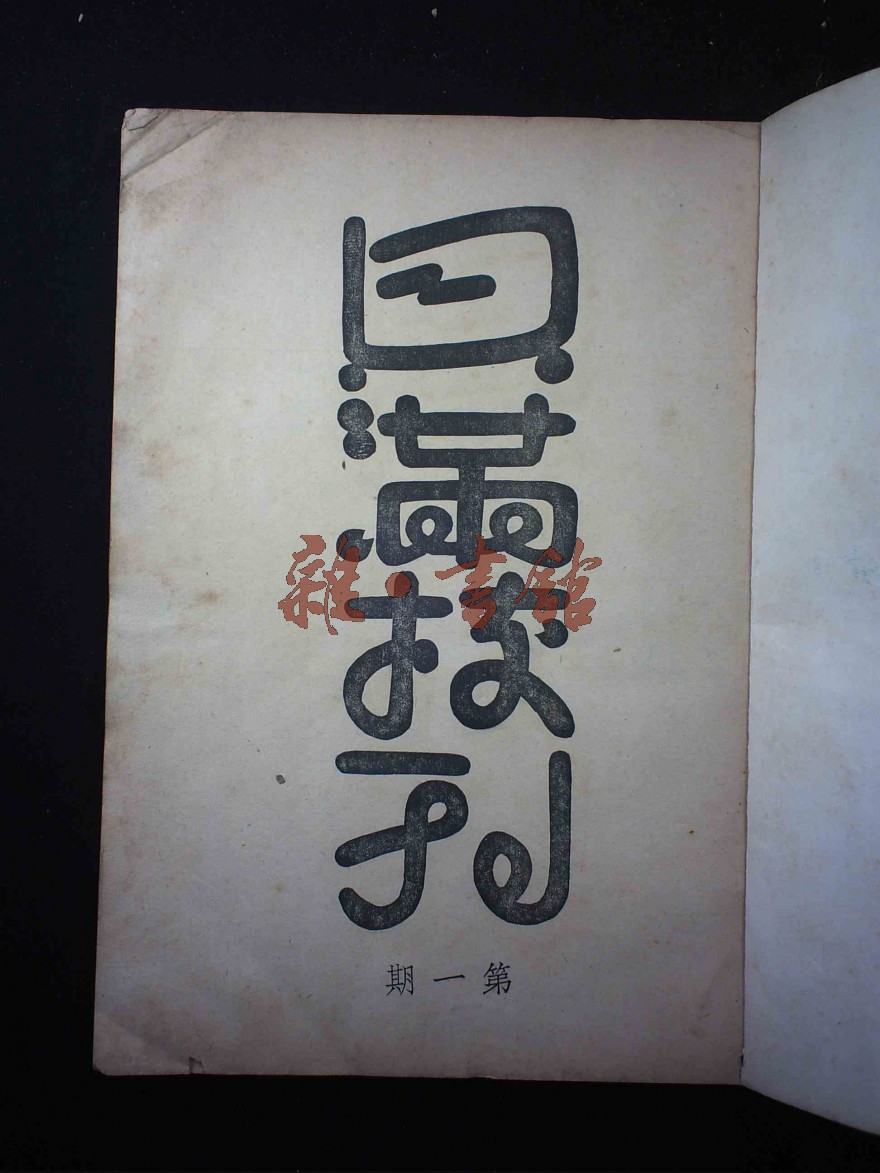 貝滿校刊
雜·書館
第一期